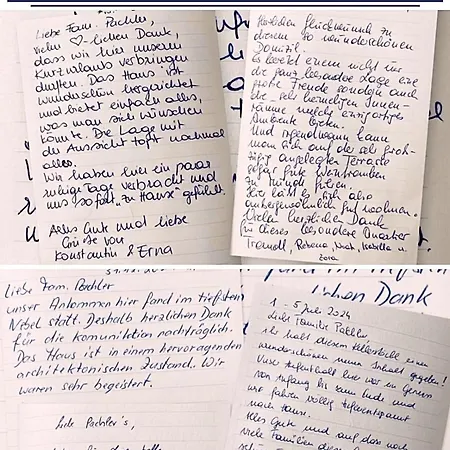 Liebe Fam. Pachler,
vielen ♡-lichen Dank,
dass wir hier unseren
Kurzurlaub verbringen
durften. Das Haus ist
wunderschön hergerichtet
und bietet einfach alles,
was man sich wünschen
könnte. Die Lage mit
der Aussicht toppt nochmal
alles.
Wir haben hier ein paar
ruhige Tage verbracht und
uns sofort "zu Hause" gefühlt.
Alles Gute und liebe
Grüße von
Konstantin & Erna
Herzlichen Glückwunsch zu
diesem so wunderschönen
Domizil.
Es bietet einem nicht nur
die ganz besondere Lage eine
große Freude sondern auch
die
Ambiente bieten.
Und irgendwann kann
man sich auf der sehr groß-
zügig angelegten Terrasse
gute Weintrauben
zu Munde führen.
Hier läßt es sich also
außergewöhnlich gut wohnen.
Vielen herzliche Dank
in dieses besondere Quartier
lichen Dank
Liebe Fam. Pachler
unser Ankommen hier fand im tiefsten
Nebel statt. Deshalb herzlichen Dank
für die Kommunikation nachträglich.
Das Haus ist in einem hervorragenden
architektonischen Zustand. Wir
waren sehr begeistert.
Liebe Pachler's,
1. - 5. Juli 2024
Liebe Familie Pachler,
ihr habt diesem Kellerstöckl einen
wunderschönen neuen Inhalt gegeben!
Unser Aufenthalt hier war ein Genuss
von Anfang bis zum Ende und
wir fahren völlig tiefenentspannt
nach Hause.
Alles Gute und auf dass noch
viele Familien diese